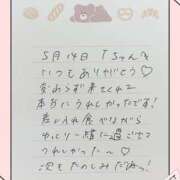 5月14日 Tちゃんへ
いつもありがとう♡
変わらず来てくれて
本当にうれしかったです!
差し入れ食べながら
ゆっくり一緒に過ごせて
うれしかった〜♡
次もたのしみだねっ!